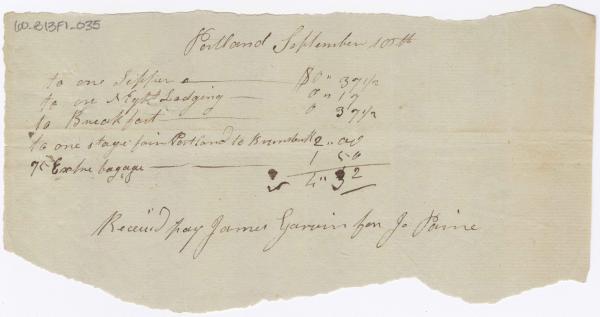 60-B13F1-035
Portland September 10th
to one Supper $0 " 37 1/2
to one Night Lodging 0 " 17
to Breakfast 0 37 1/2
to one stage fair Portland to 2 " 00
75 Extra bagage 1 50
4 " 32
Receiv'd pay James Garvin for Jo Paine